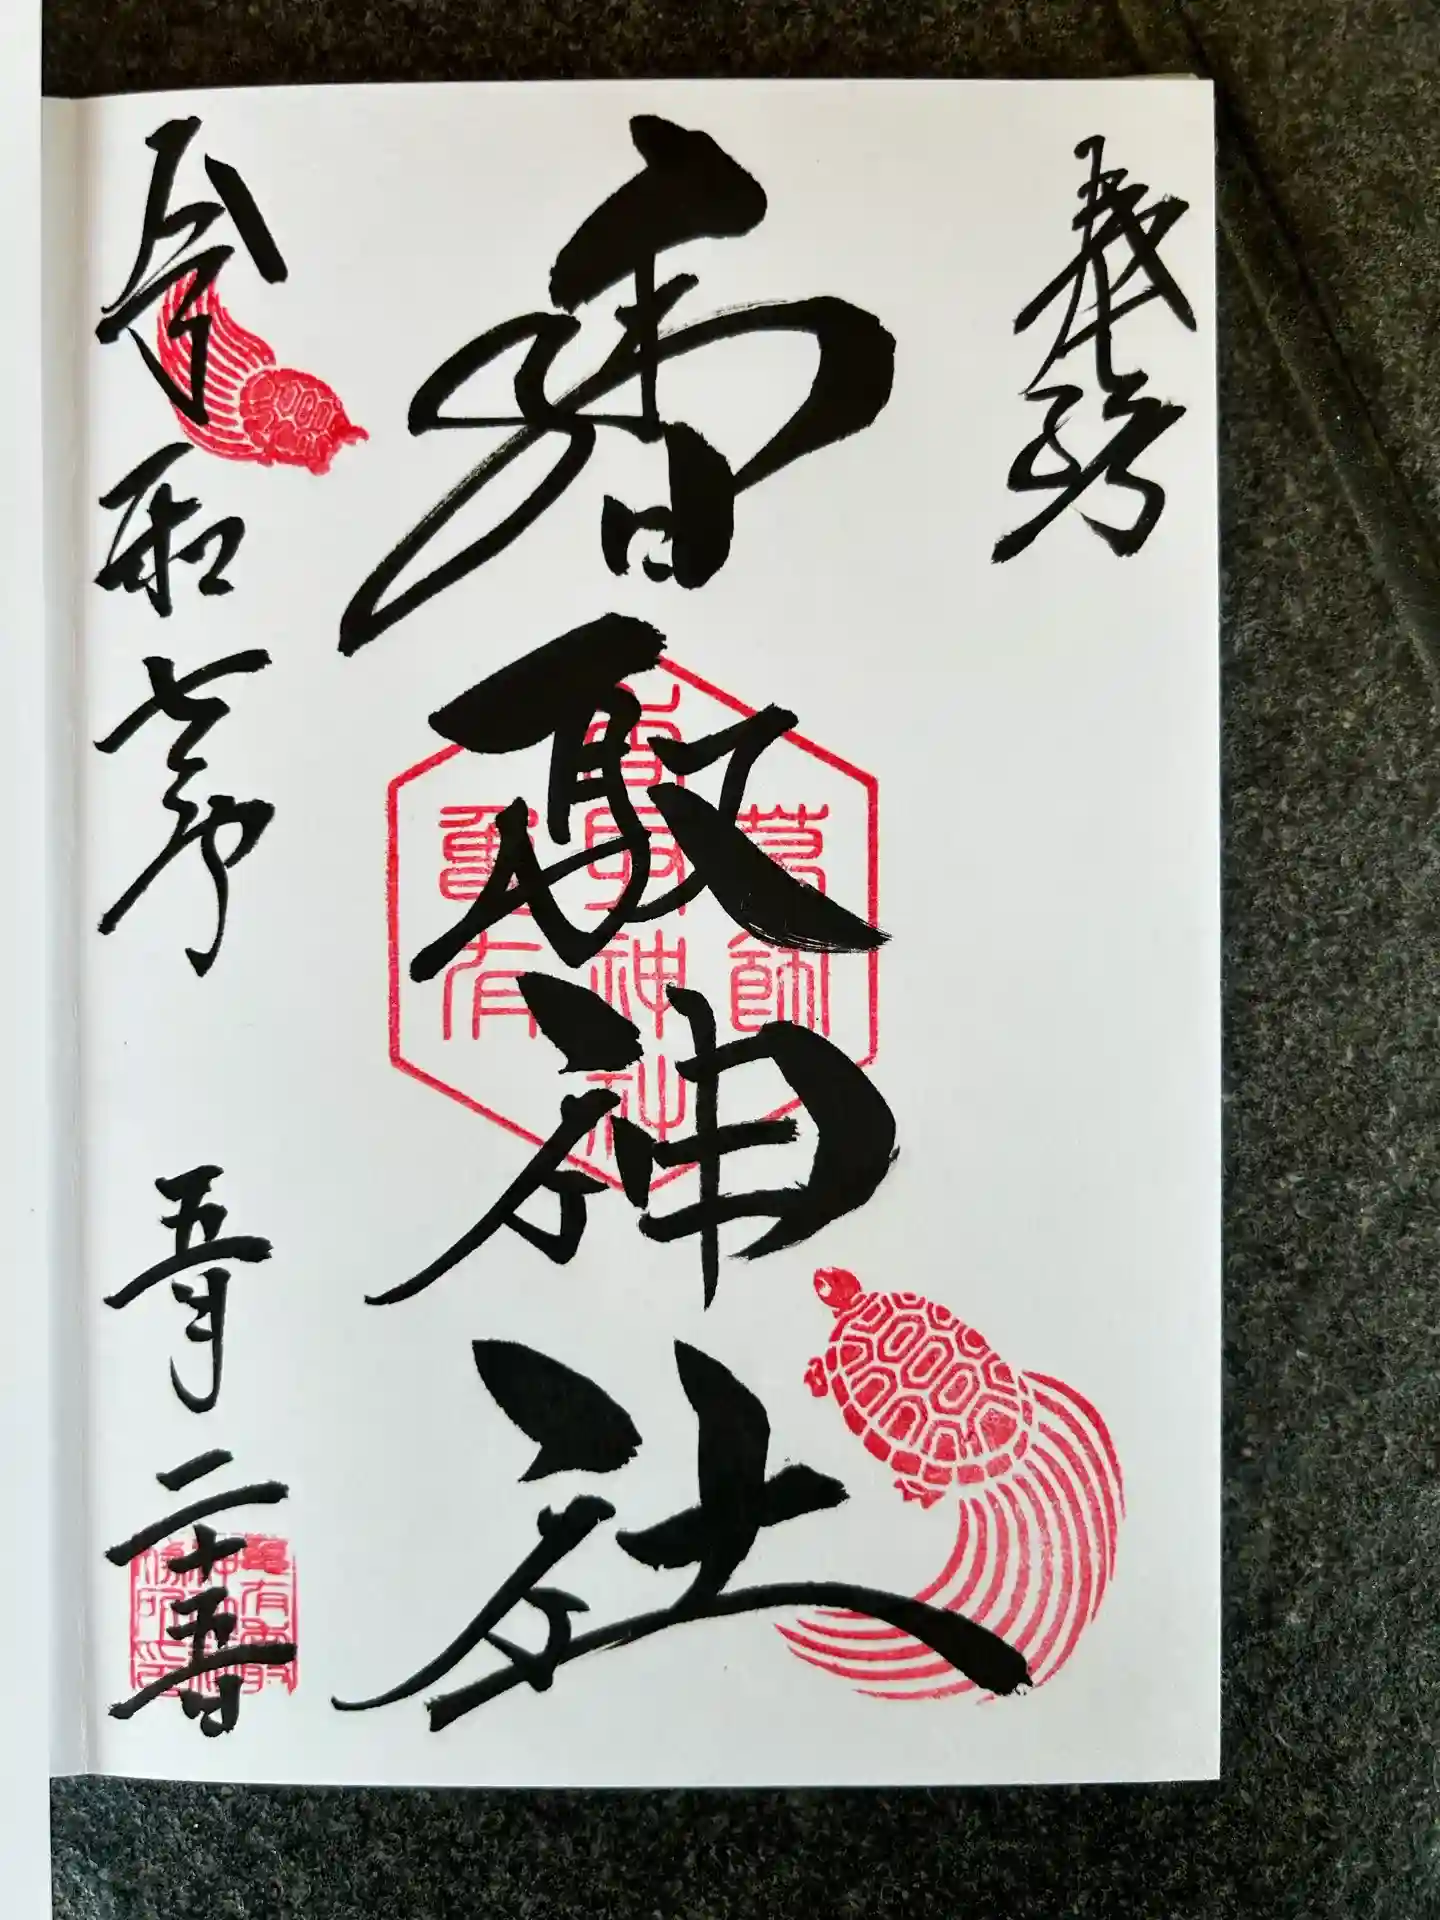 奉拝
香取神社
葛飾
香取神社
亀有
令和七年 五月二十五日
亀有香取
神社